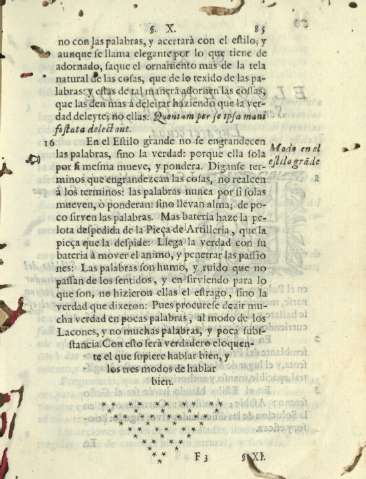 §. X. 85
no con las palabras, y acertarà con el estilo, y
aunque se llama elegante por lo que tiene de
adornado, saque el ornamento mas de la tela
natural de las cosas, que de lo texido de las pa-
labras: y estas de tal manera adornen las cosas,
que las den mas à deleitar haziendo que la ver-
dad deleyte; no ellas: Quoniam per se ipsa mani
festata delectant.
16 En el Estilo grande no se engrandecen
las palabras, sino la verdad: porque ella sola
por si mesma mueve, y pondera. Diganse ter-
minos que engrandezcan las cosas, no realcen
à los terminos: las palabras nunca por si solas
mueven, ò ponderan: sino llevan alma, de po-
co sirven las palabras. Mas bateria haze la pe-
lota despedida de la Pieça de Artilleria, que la
pieça que la despide: Llega la verdad con su
bateria à mover el animo, y penetrar las passio
nes: Las palabras son humo, y ruido que no
passan de los sentidos, y en sirviendo para lo
que son, no hizieron ellas el estrago, sino la
verdad que dixeron: Pues procurese dezir mu-
cha verdad en pocas palabras, al modo de los
Lacones, y no muchas palabras, y poca subs-
tancia Con esto serà verdadero eloquen-
te el que supiere hablar bien, y
los tres modos de hablar
bien.
Modo en el
estilo grãde
F 3 § XI.